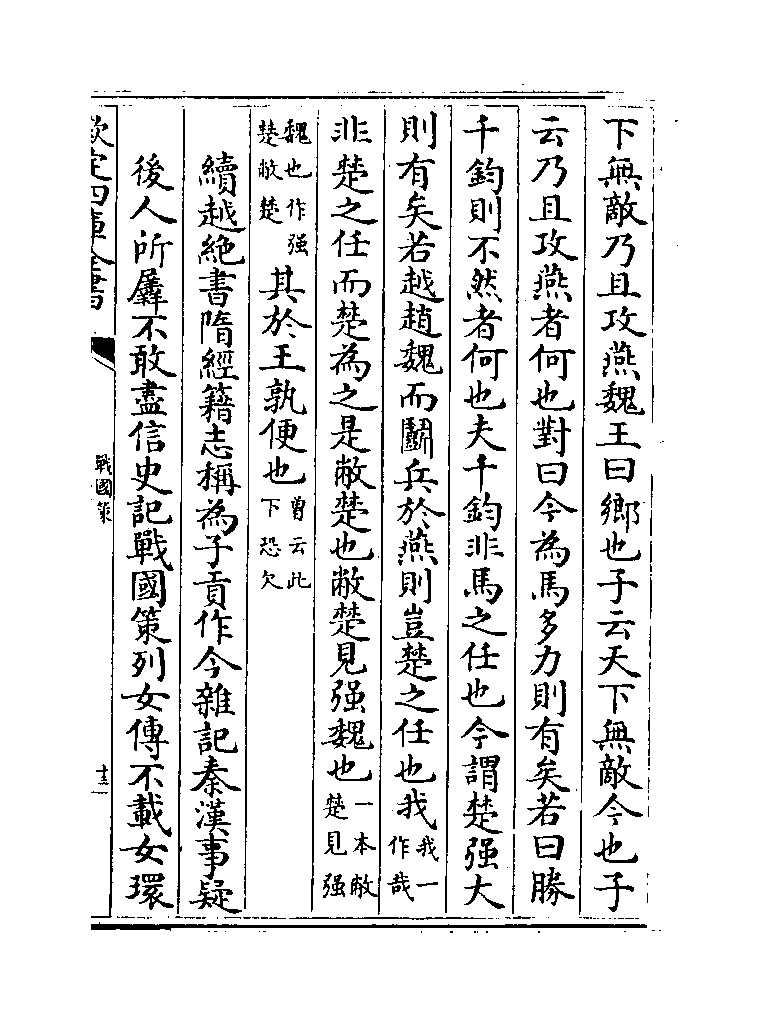 下無敵乃且攻燕魏王曰鄉也子云天下無敵今也子
云乃且攻燕者何也對曰今為馬多力則有矣若曰勝
千鈞則不然者何也夫千鈞非馬之任也今謂楚强大
則有矣若越趙魏而鬭兵於燕則豈楚之任也我我一作哉
非楚之任而楚為之是敝楚也敝楚見强魏也一本敝楚見强
魏也作强楚敝楚其於王孰便也曾云此下恐欠
續越絶書隋經籍志稱為子貢作今雜記秦漢事疑
後人所羼不敢盡信史記戰國策列女傳不載女環
欽定四庫全書
戰國策
十三